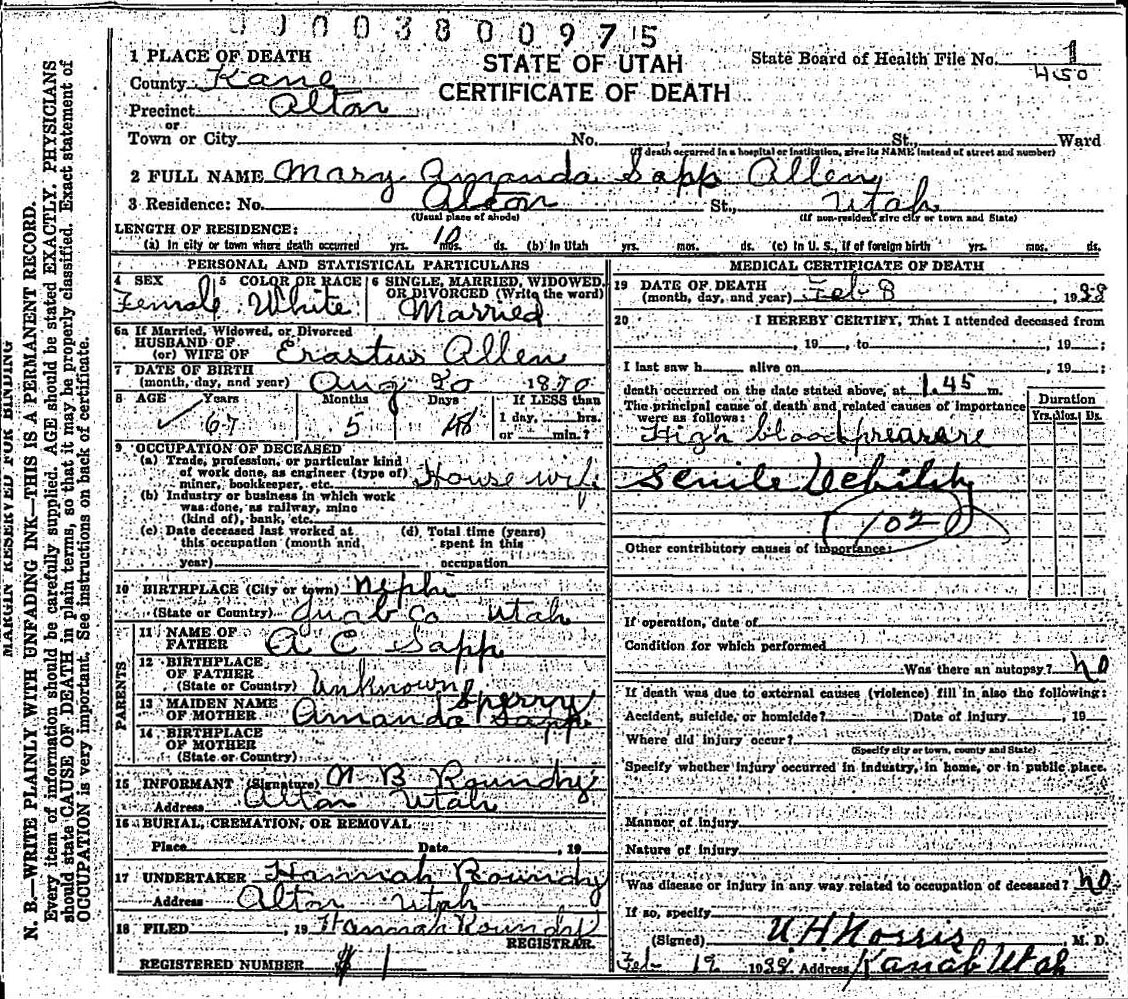 0000380 0975
1 PLACE OF DEATH
STATE OF UTAH
CERTIFICATE OF DEATH
State Board of Health File No. 1
450
County Kane
Precinct Alton
or
Town or City No. , St., Ward
(If death occurred in a hospital or institution, give its NAME instead of street and number)
2 FULL NAME Mary Amanda Sapp Allen
3 Residence: No. Alton St., Utah
(Usual place of abode) (If non-resident give city or town and State)
LENGTH OF RESIDENCE:
(a) In city or town where death occurred yrs. 10 mos. ds. (b) In Utah yrs. mos. ds. (c) In U. S., if of foreign birth yrs. mos. ds.
PERSONAL AND STATISTICAL PARTICULARS
4 SEX 5 COLOR OR RACE 6 SINGLE, MARRIED, WIDOWED,
OR DIVORCED (Write the word)
Female White Married
6a If Married, Widowed, or Divorced
HUSBAND OF
(or) WIFE OF Erastus Allen
7 DATE OF BIRTH
(month, day, and year) Aug 20 1870
8 AGE Years Months Days If LESS than
1 day, hrs.
or min.?
67 5 18
9 OCCUPATION OF DECEASED
(a) Trade, profession, or particular kind
of work done, as engineer (type of)
miner, bookkeeper, etc. House wife
(b) Industry or business in which work
was done, as railway, mine
(kind of), bank, etc.
(c) Date deceased last worked at
this occupation (month and
year)
(d) Total time (years)
spent in this
occupation
10 BIRTHPLACE (City or town) Nephi
(State or Country) Juab Co Utah
PARENTS
11 NAME OF
FATHER A C Sapp
12 BIRTHPLACE
OF FATHER
(State or Country) Unknown
13 MAIDEN NAME
OF MOTHER Amanda Sapp
Sperry
14 BIRTHPLACE
OF MOTHER
(State or Country)
15 INFORMANT (Signature) N B Roundy
Address Alton Utah
16 BURIAL, CREMATION, OR REMOVAL
Place Date , 19
17 UNDERTAKER Hannah Roundy
Address Alton Utah
18 FILED , 19 Hannah Roundy
REGISTRAR.
REGISTERED NUMBER # 1
MEDICAL CERTIFICATE OF DEATH
19 DATE OF DEATH
(month, day, and year) Feb 8 , 1938
20 I HEREBY CERTIFY, That I attended deceased from
, 19 , to , 19 ;
I last saw h alive on , 19 ;
death occurred on the date stated above, at 1.45 m.
The principal cause of death and related causes of importance
were as follows:
Duration
Yrs. Mos. Ds.
High blood prearare
Senile Debility
102
Other contributory causes of importance:
If operation, date of
Condition for which performed
Was there an autopsy? no
If death was due to external causes (violence) fill in also the following:
Accident, suicide, or homicide? Date of injury , 19
Where did injury occur?
(Specify city or town, county and State)
Specify whether injury occurred in industry, in home, or in public place.
Manner of injury
Nature of injury
Was disease or injury in any way related to occupation of deceased? no
If so, specify
(Signed) U. H Norris M. D.
Feb 19 1938 Address Kanab Utah
MARGIN RESERVED FOR BINDING
N. B.—WRITE PLAINLY WITH UNFADING INK—THIS IS A PERMANENT RECORD.
Every item of information should be carefully supplied. AGE should be stated EXACTLY. PHYSICIANS
should state CAUSE OF DEATH in plain terms, so that it may be properly classified. Exact statement of
OCCUPATION is very important. See instructions on back of certificate.